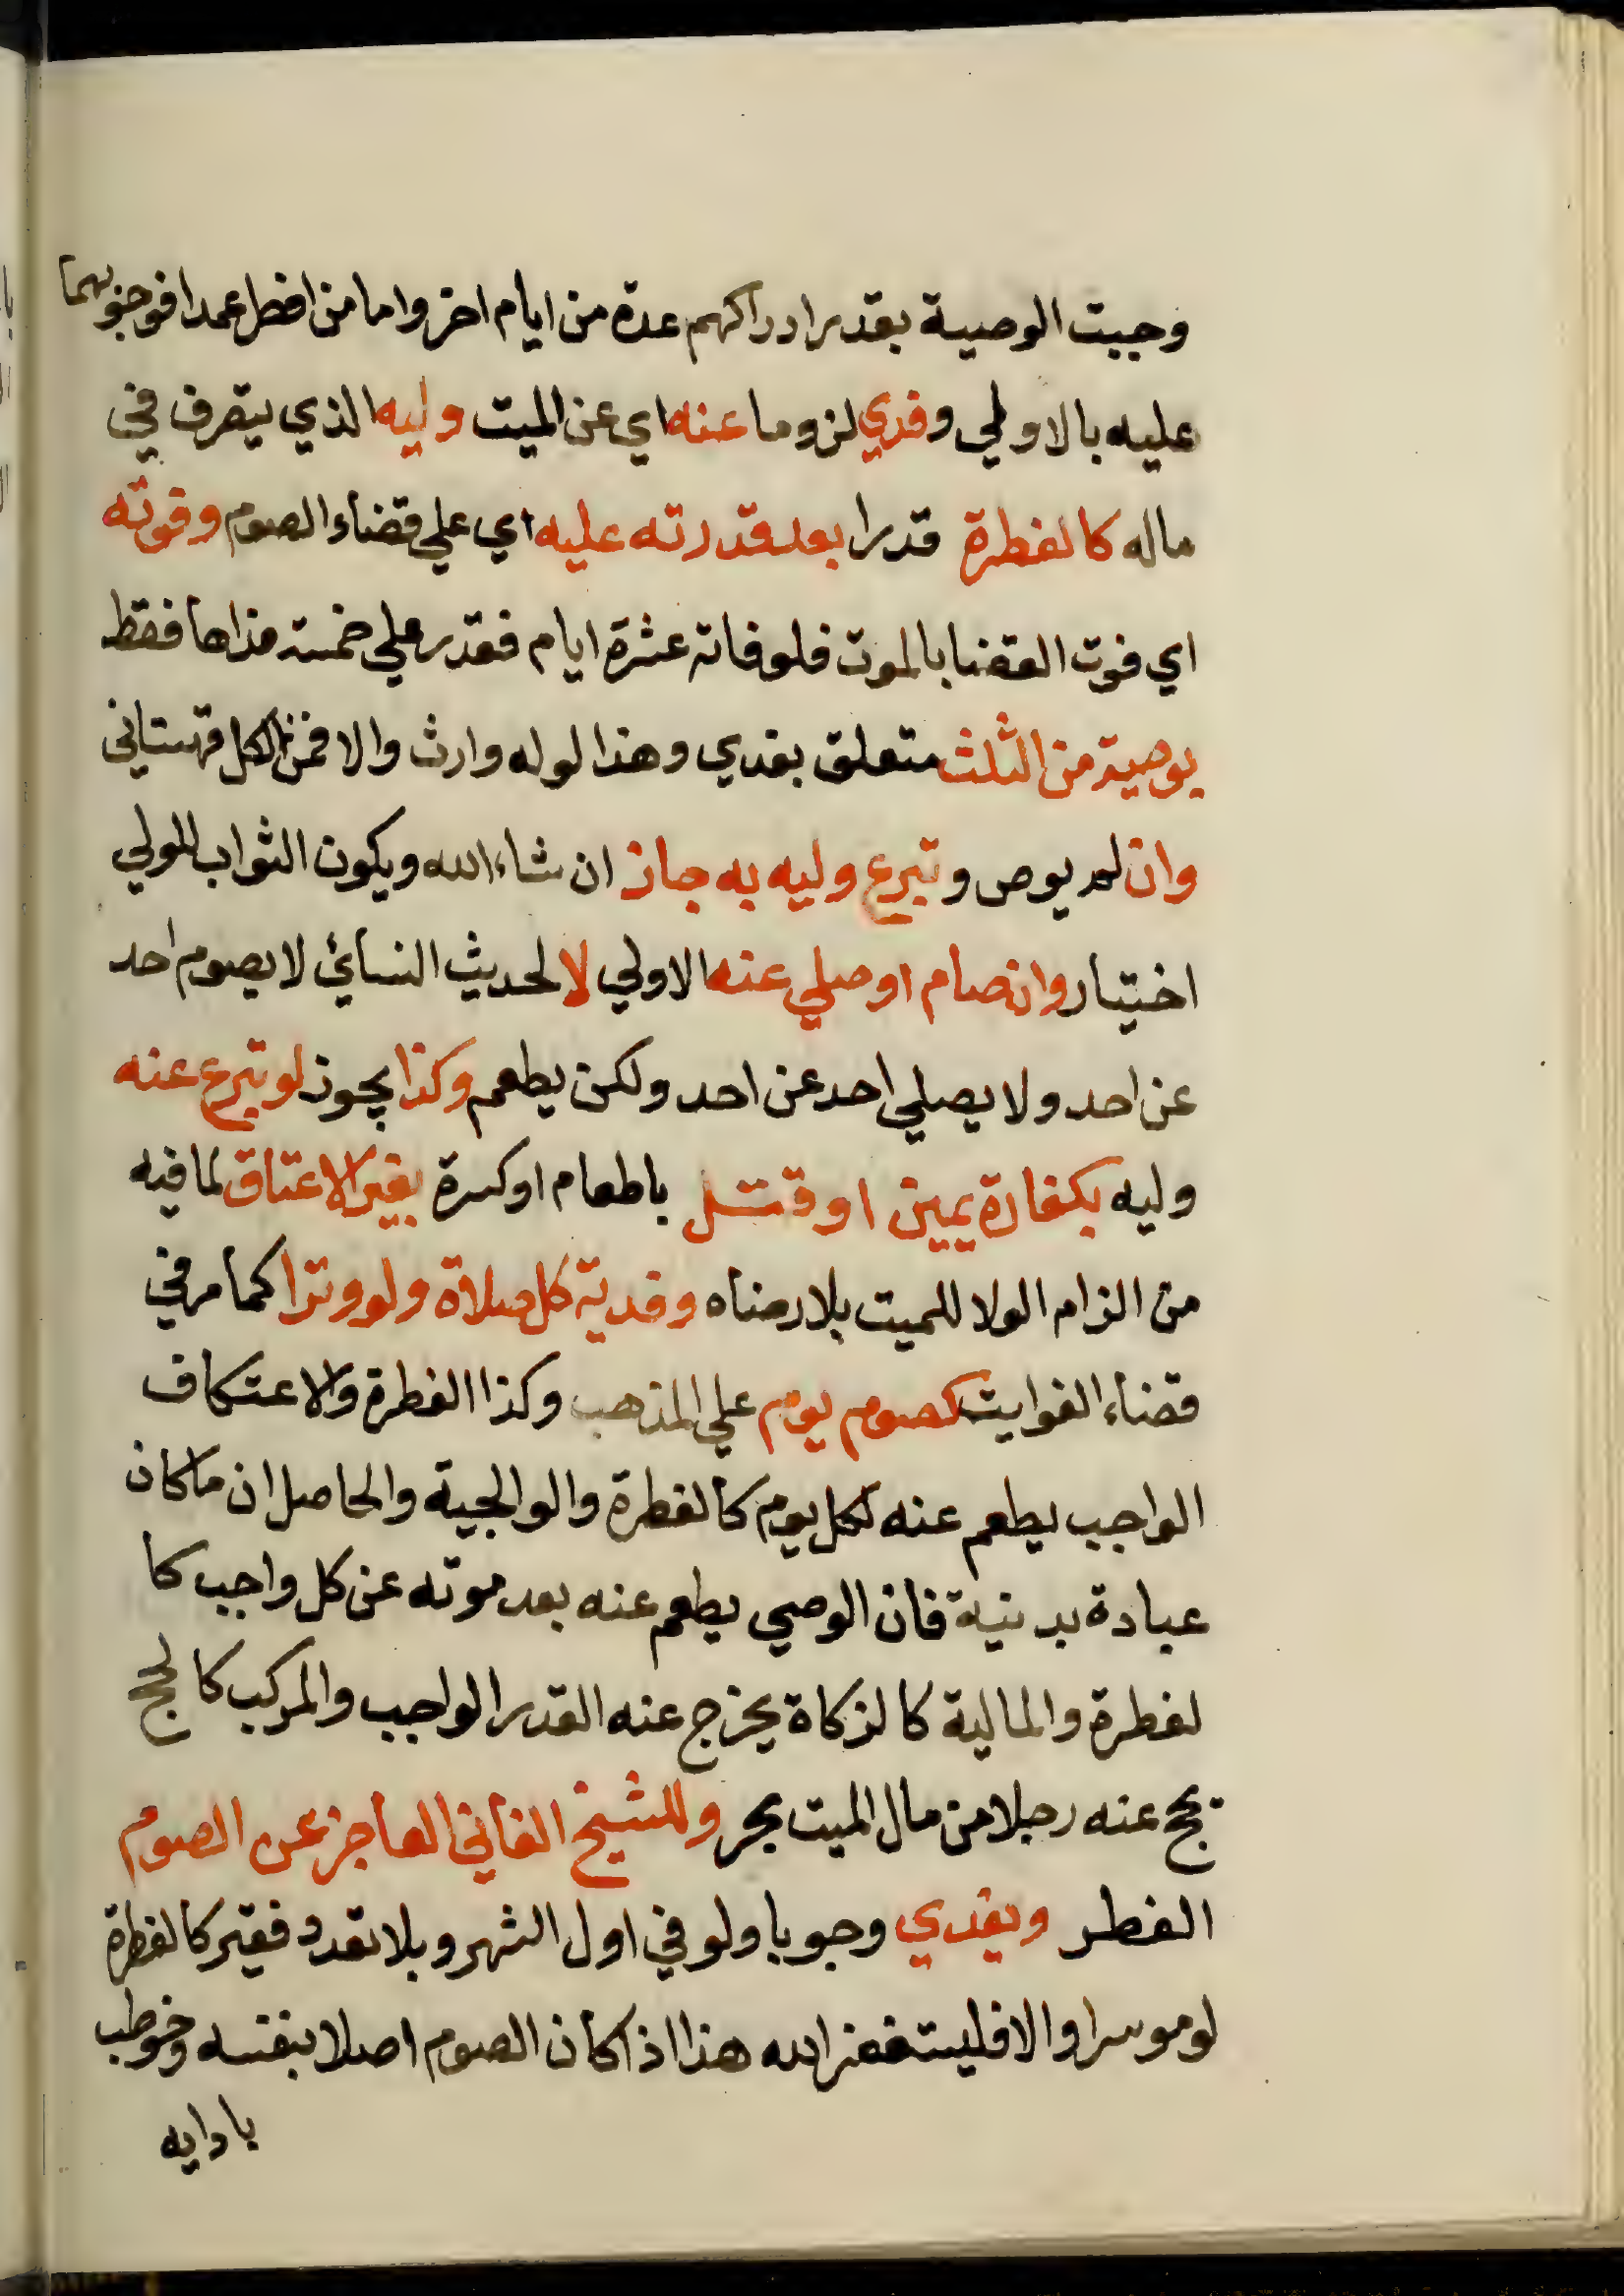 وجبت الوصية بقدر ادراكهم عدة من ايام اخر واما من افطر عمدا فوجوبها
عليه بالاولي وفدي لزوما عنه اي عن الميت وليه الذي يتصرف في
ماله كالفطرة قدرا بعد قدرته عليه اي علي قضاء الصوم وفوته
اي فوت القضا بالموت فلو فاته عشرة ايام فقدر علي خمسة فداها فقط
بوصية من الثلث متعلق بفدي وهذا لو له وارث والا فمن الكل قهستاني
وان لم يوص وتبرع وليه به جاز ان شاء الله ويكون الثواب للولي
اختيار وان صام او صلي عنه الاولي لا لحديث النسائ لا يصوم احد
عن احد ولا يصلي احد عن احد ولكن يطعم وكذا يجوز لو تبرع عنه
وليه بكفارة يمين او قتل باطعام او كسرة بغير الاعتاق لما فيه
من الزام الولا للميت بلا رضاه وفدية كل صلاة ولو وترا كما مر في
قضاء الفوايت كصوم يوم علي المذهب وكذا الفطرة والاعتكاف
الواجب يطعم عنه لكل يوم كالفطرة والوالجية والحاصل ان ما كان
عبادة بدنية فان الوصي يطعم عنه بعد موته عن كل واجب كا
لفطرة والمالية كالزكاة يخرج عنه القدر الواجب والمركب كالحج
يحج عنه رجلا من مال الميت بحر وللشيخ الفاني العاجز عن الصوم
الفطر ويفدي وجوبا ولو في اول الشهر وبلا تعدد فقير كالفطرة
لو موسرا والا فليستغفر الله هذا اذا كان الصوم اصلا بنفسه وخوطب
بادايه